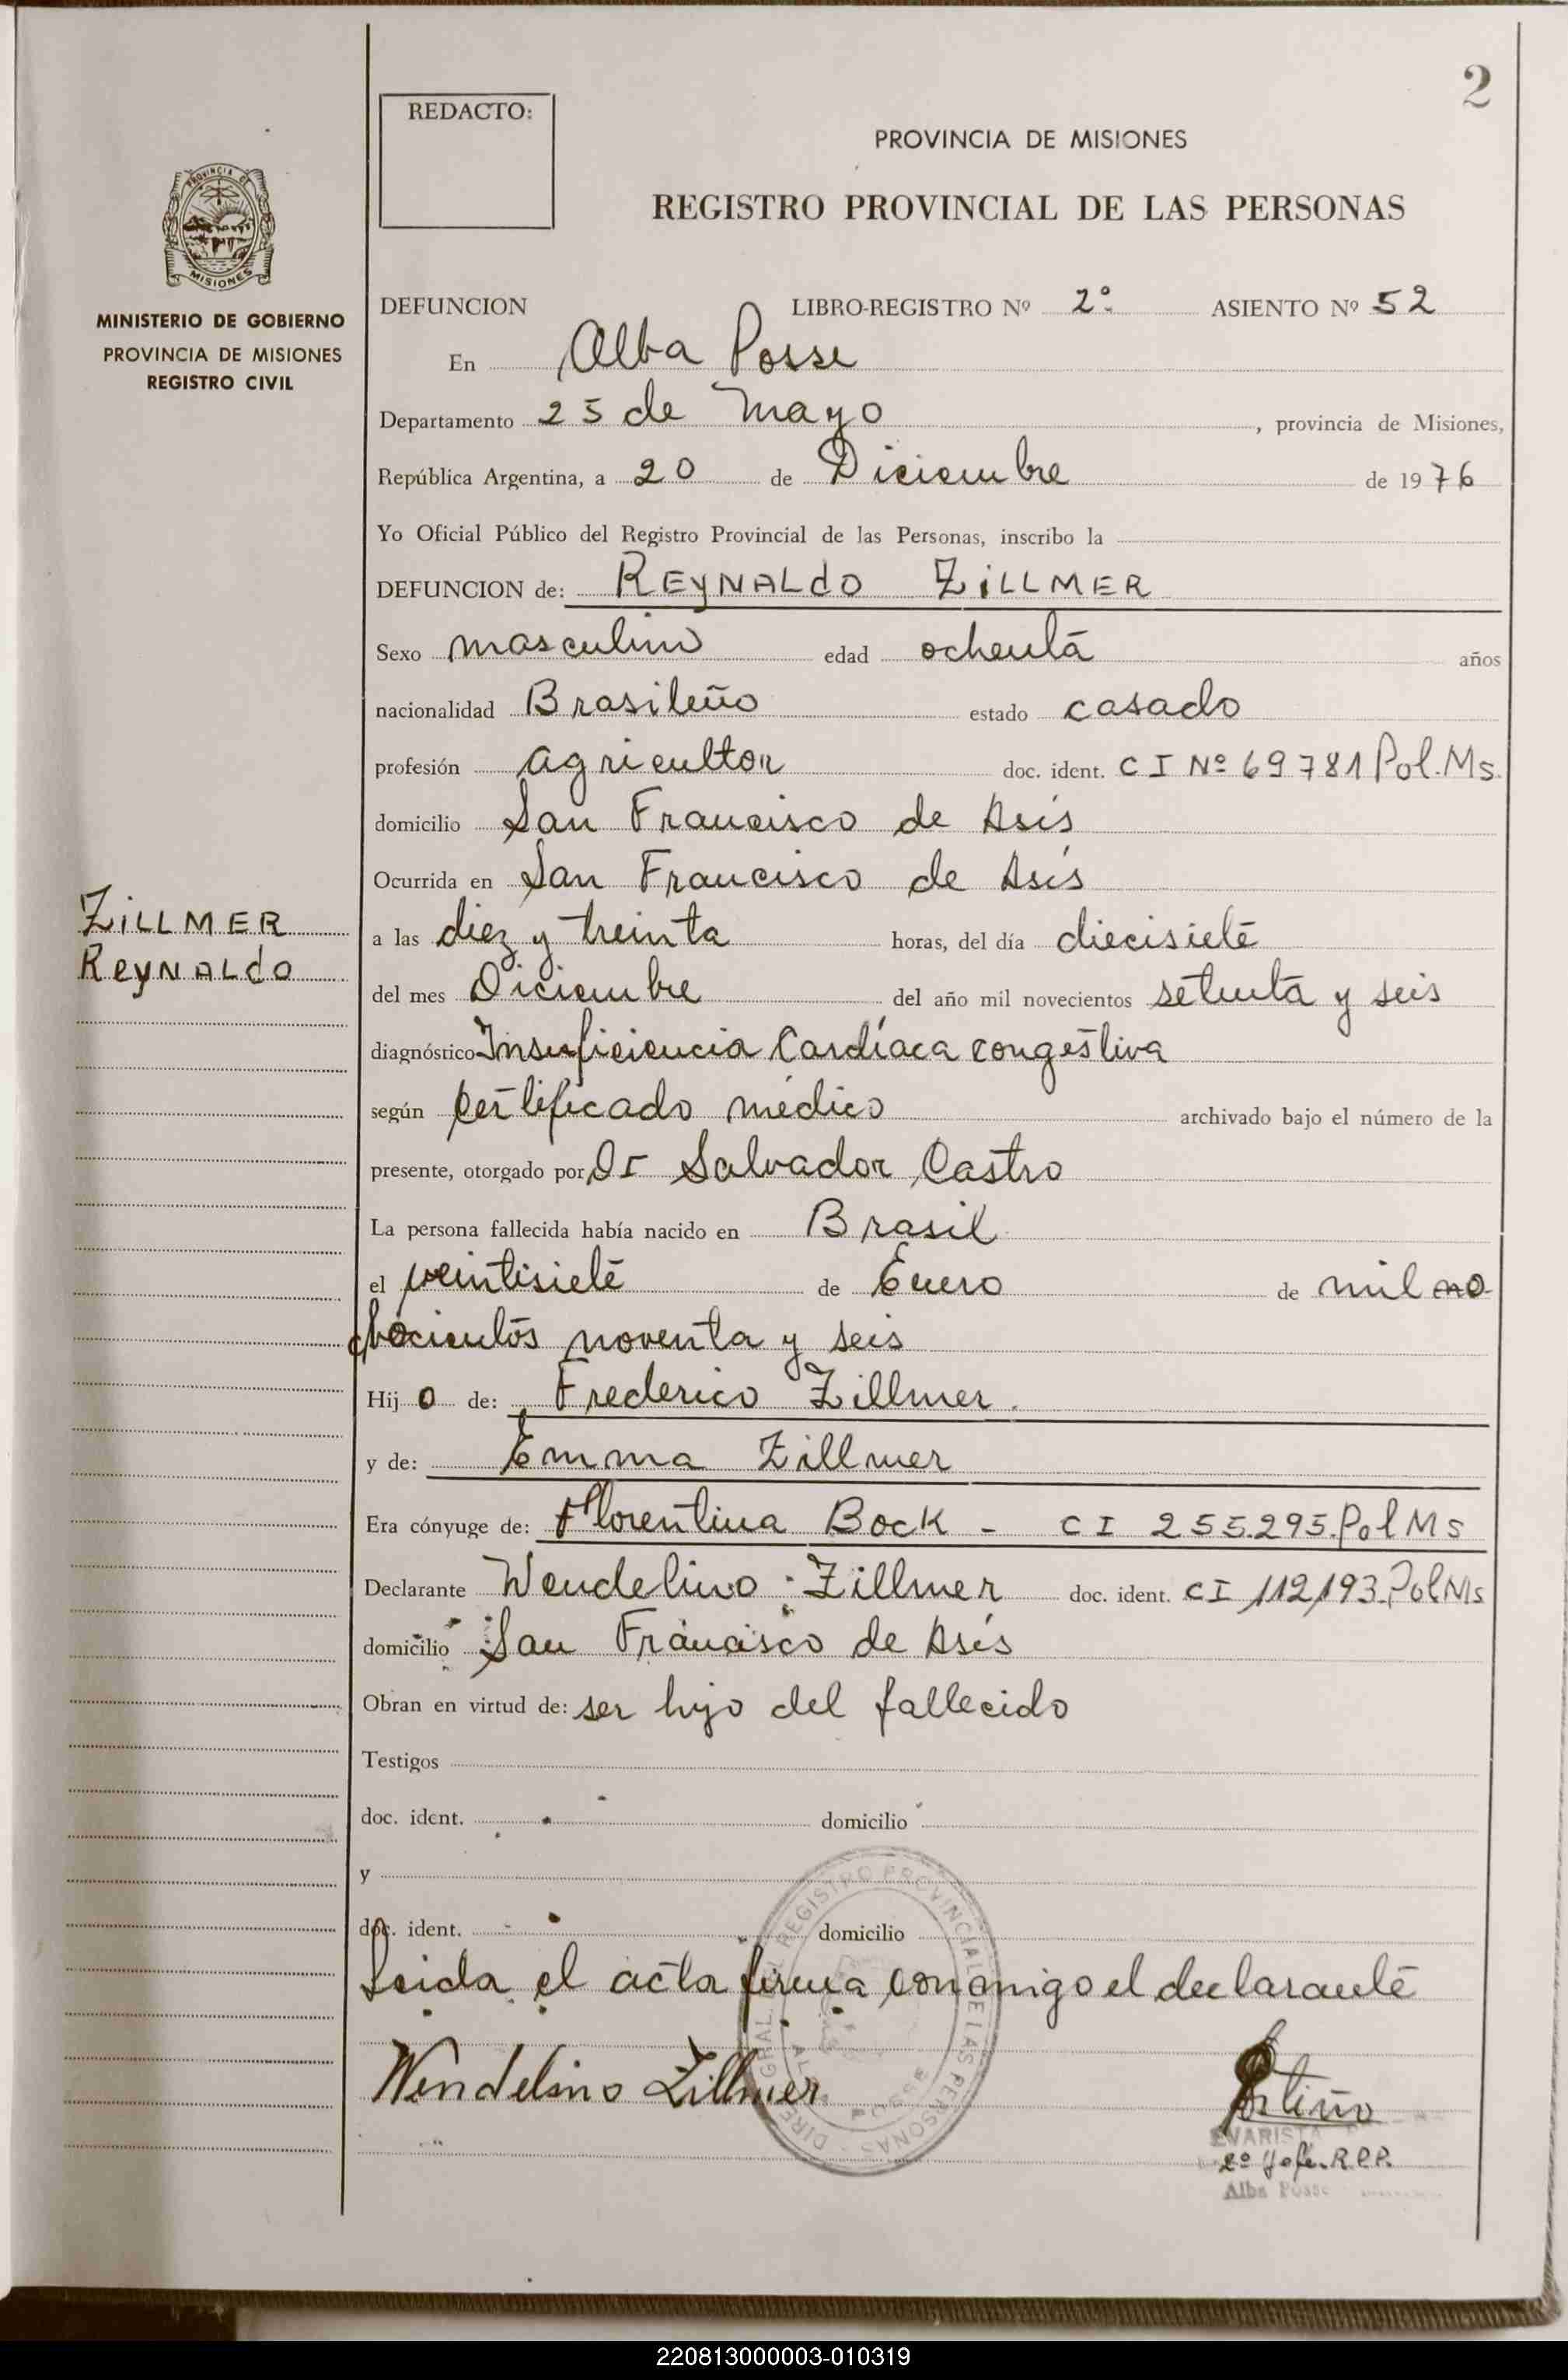 2
REDACTO:
PROVINCIA DE MISIONES
REGISTRO PROVINCIAL DE LAS PERSONAS
MISIONES
MINISTERIO DE GOBIERNO
PROVINCIA DE MISIONES
REGISTRO CIVIL
DEFUNCION LIBRO-REGISTRO Nº 2º ASIENTO Nº 52
En Alba Posse
Departamento 25 de Mayo, provincia de Misiones,
República Argentina, a 20 de Diciembre de 1976
Yo Oficial Público del Registro Provincial de las Personas, inscribo la
DEFUNCION de: REYNALdO ZiLLMER
Sexo masculino edad ochenta años
nacionalidad Brasileño estado casado
profesión agricultor doc. ident. CI Nº 69781 Pol. Ms.
domicilio San Francisco de Asís
Ocurrida en San Francisco de Asís
ZiLLMER
ReyNALdO
a las diez y treinta horas, del día diecisiete
del mes Diciembre del año mil novecientos setenta y seis
diagnóstico Insuficiencia Cardíaca congestiva
según Certificado médico archivado bajo el número de la
presente, otorgado por Dr Salvador Castro
La persona fallecida había nacido en Brasil
el veintisiete de Enero de mil no
chocientos noventa y seis
Hijo de: Frederico Zillmer.
y de: Emma Zillmer
Era cónyuge de: Florentina Bock - CI 255.295. Pol Ms
Declarante Wendelino Zillmer doc. ident. CI 112,193. Pol Ms
domicilio San Francisco de Asís
Obran en virtud de: ser hijo del fallecido
Testigos
doc. ident. domicilio
y
doc. ident. domicilio
Leida el acta firma conmigo el declarante
Wendelino Zillmer
REGISTRO PROVINCIAL DE LAS PERSONAS
POSSE
EVARIST
2º Jefe. R.P.P.
Alba Posse
220813000003-010319